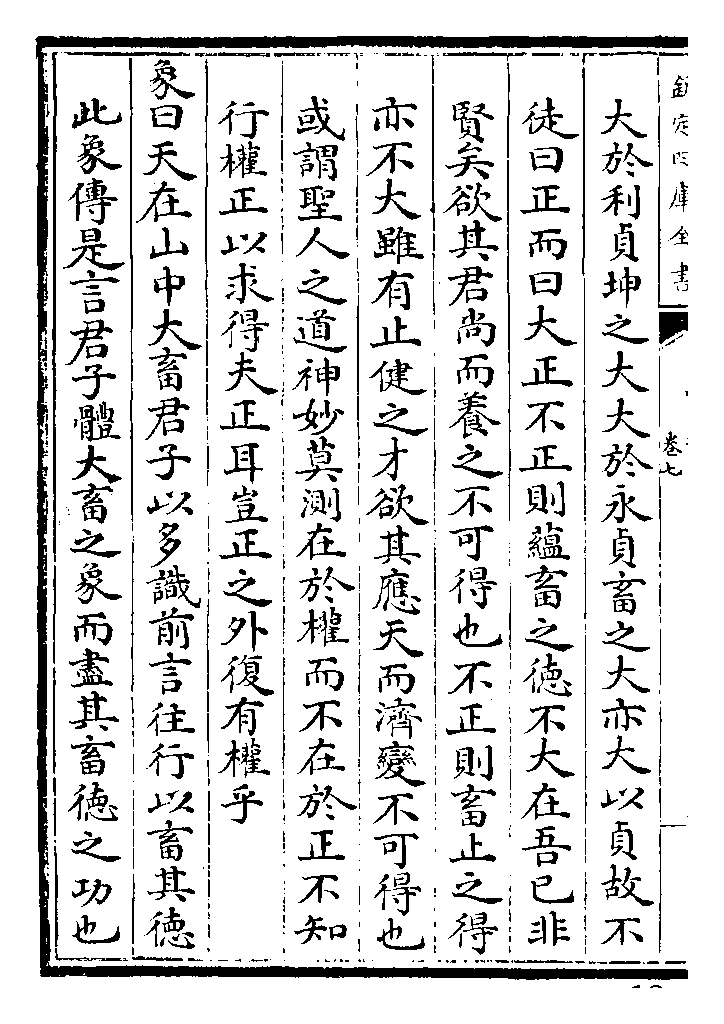 欽定四庫全書
卷七
大於利貞坤之大大於永貞畜之大亦大以貞故不
徒曰正而曰大正不正則蘊畜之徳不大在吾已非
賢矣欲其君尚而養之不可得也不正則畜止之得
亦不大雖有止健之才欲其應天而濟變不可得也
或謂聖人之道神妙莫測在於權而不在於正不知
行權正以求得夫正耳豈正之外復有權乎
象曰天在山中大畜君子以多識前言往行以畜其徳
此象傳是言君子體大畜之象而盡其畜徳之功也